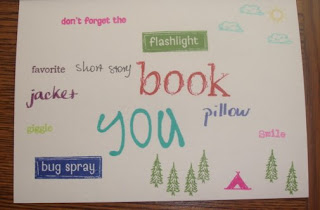 don't forget the
flashlight
favorite short story book
jacket
you
pillow
giggle
smile
bug spray